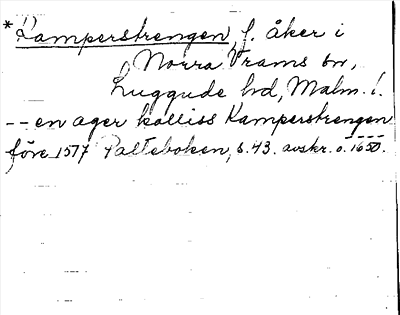 *Kamperstrengen, f. åker i
Norra Vrams sn,
Luggude hd, Malm. l.
-- en ager kalliss Kamperstrengen
före 1577 Palteboken, s. 43. avskr. o. 1650.